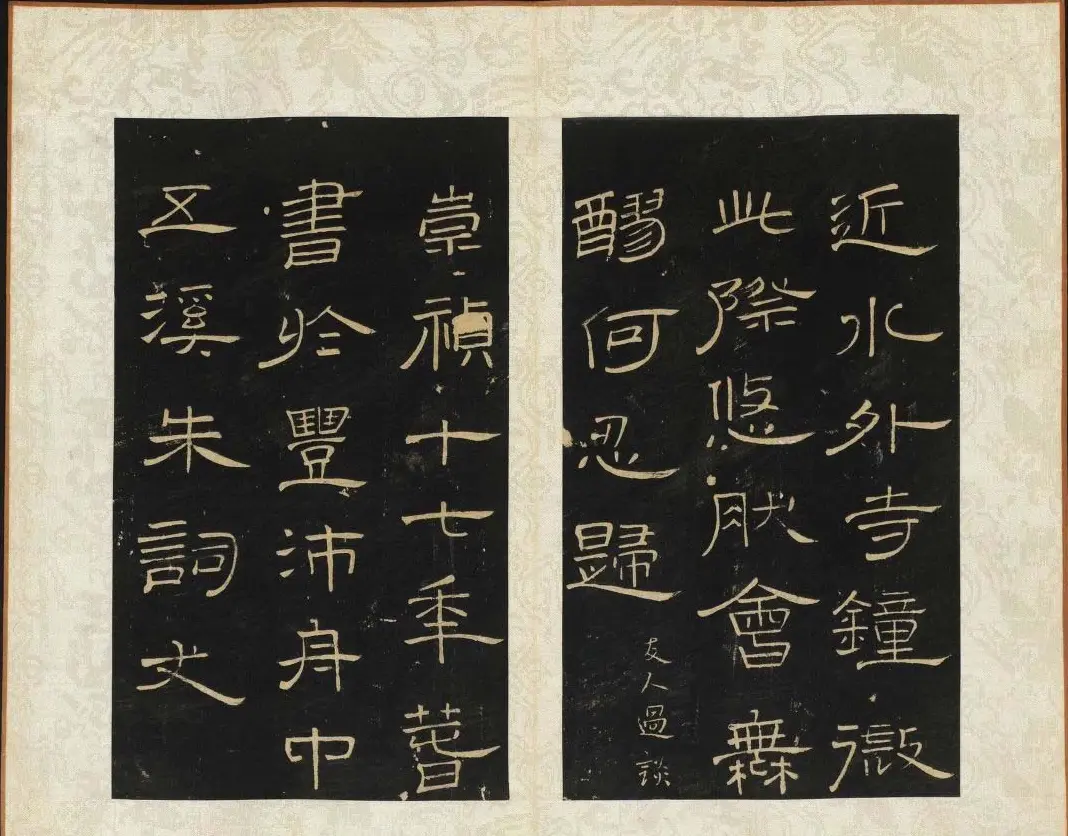 近水外寺鐘微
此際悠肰會無
醪何忍歸
友人過談
崇禎十七年萅
書於豐沛舟中
五溪朱詞丈